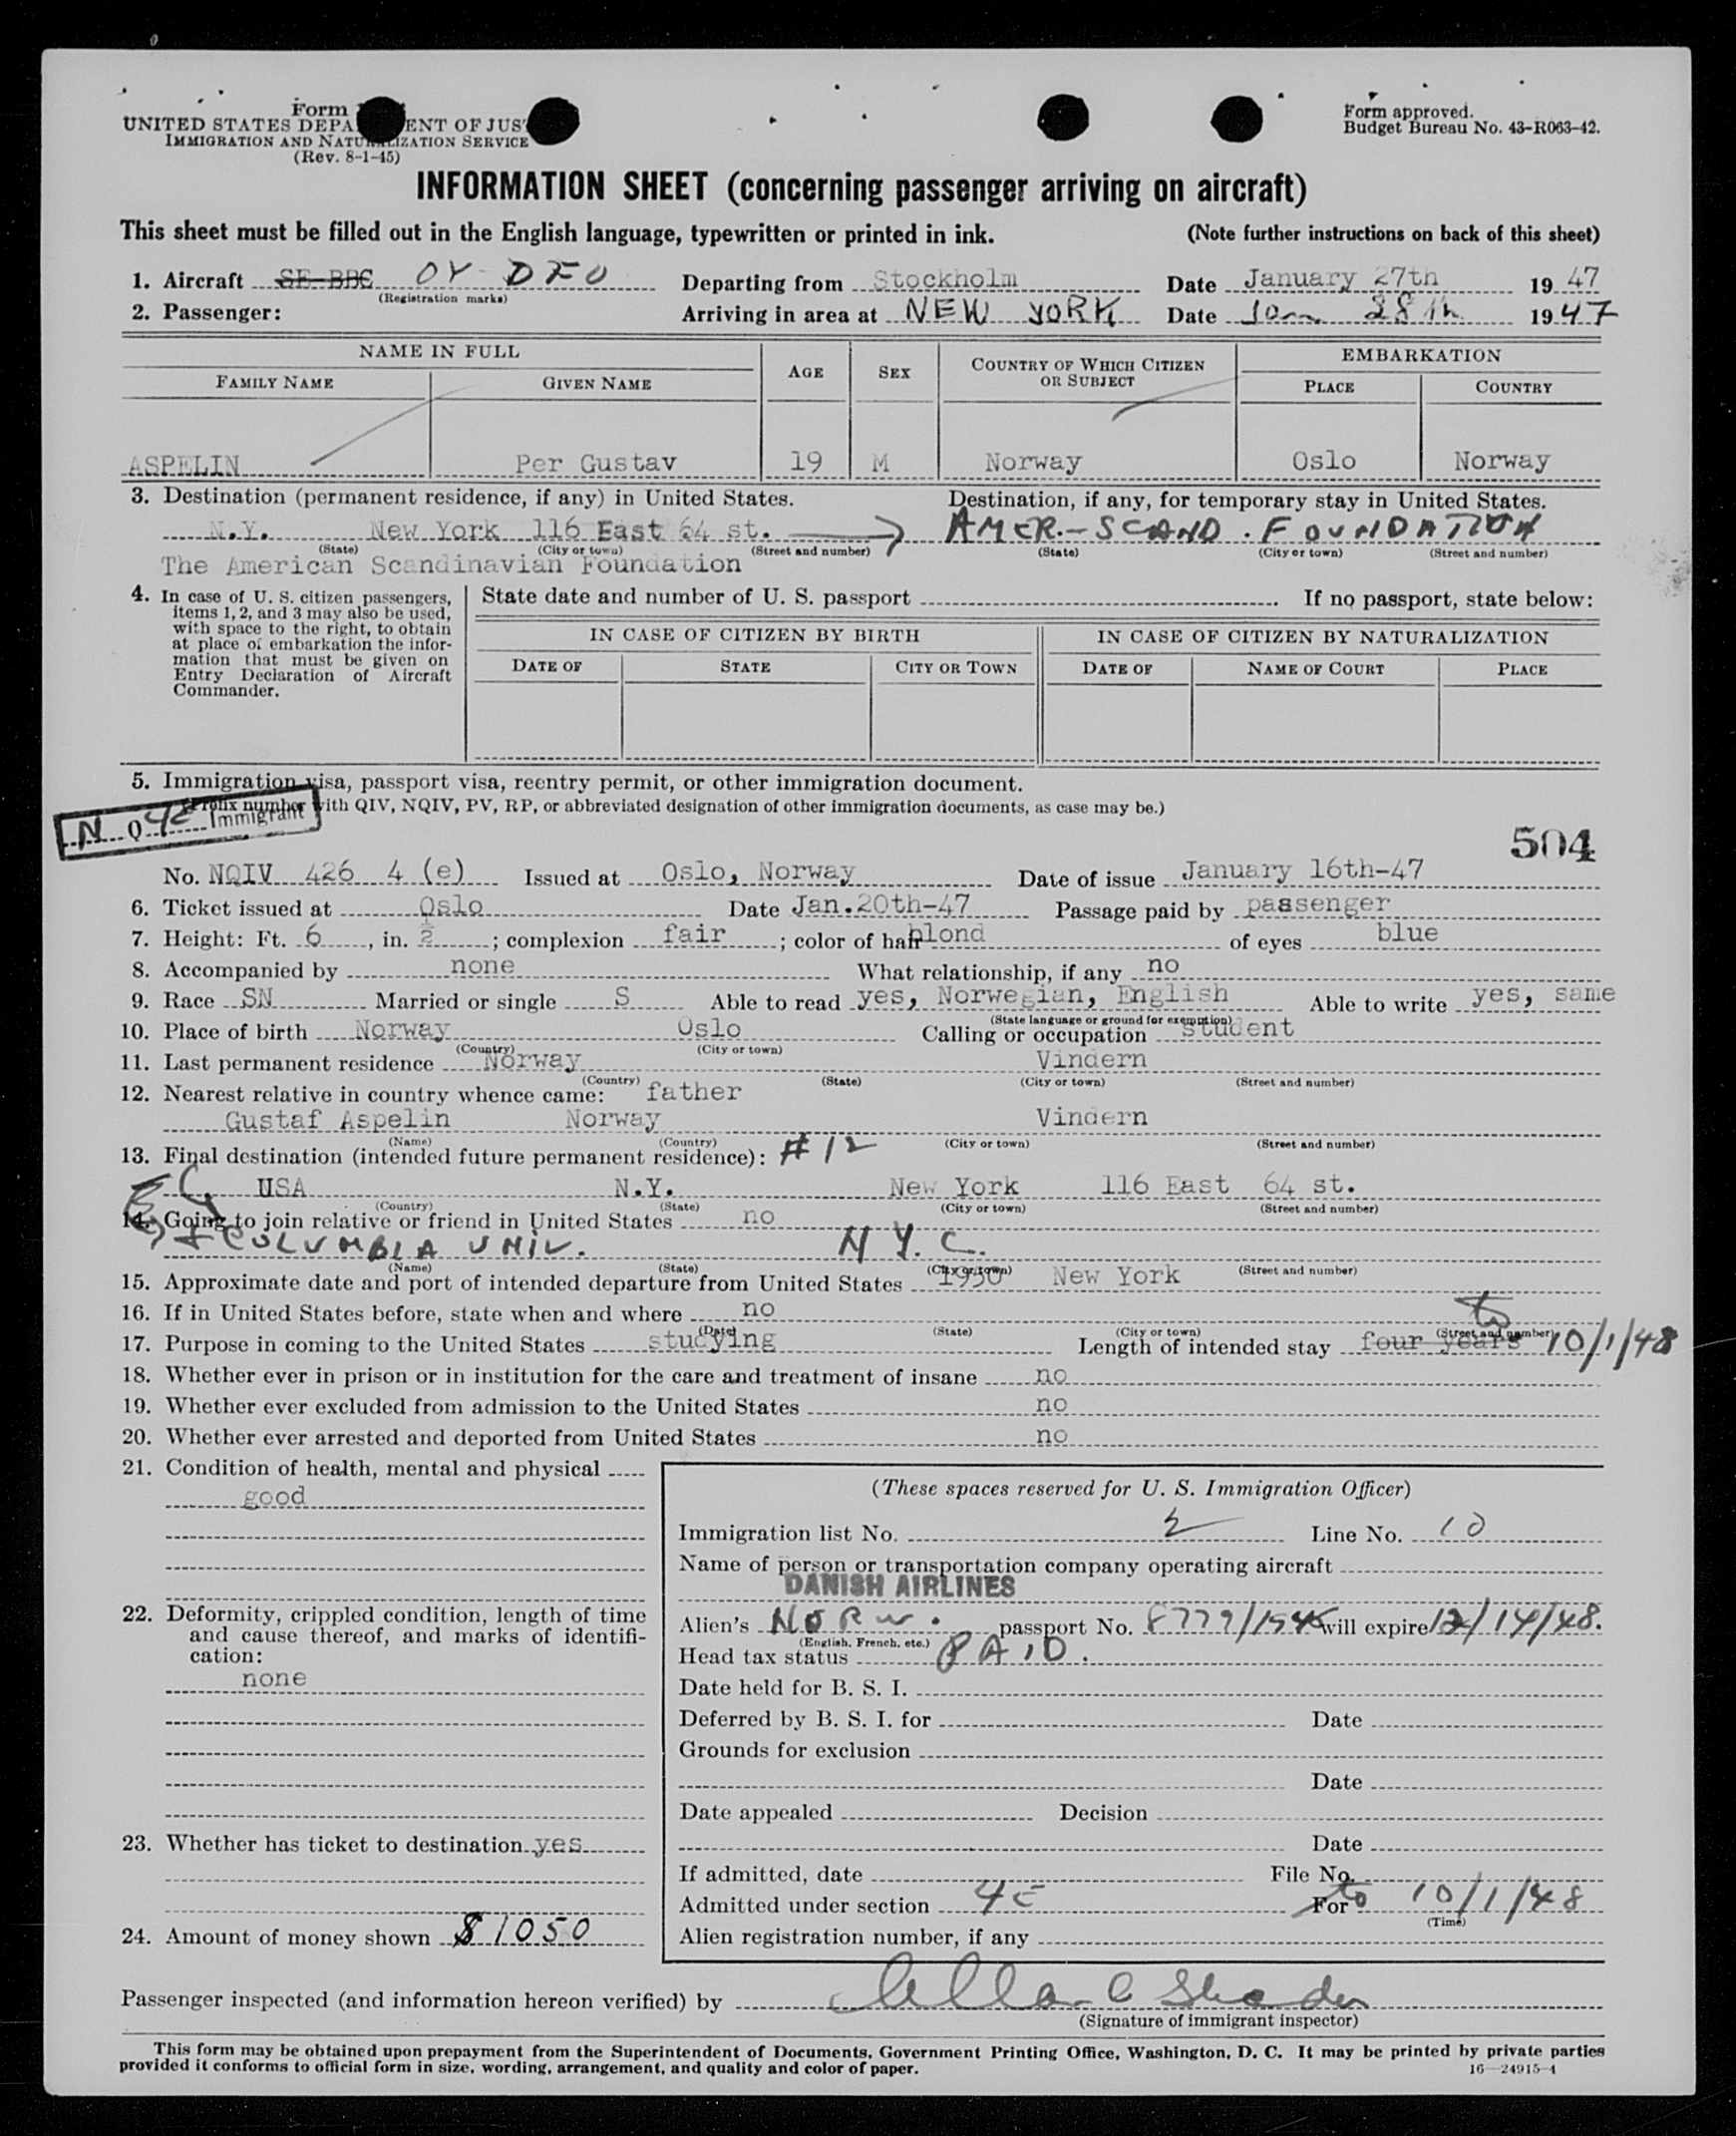 Form
UNITED STATES DEPA ENT OF JUS
IMMIGRATION AND NATURALIZATION SERVICE
(Rev. 8-1-45)
Form approved.
Budget Bureau No. 43-R063-42.
INFORMATION SHEET (concerning passenger arriving on aircraft)
This sheet must be filled out in the English language, typewritten or printed in ink. (Note further instructions on back of this sheet)
1. Aircraft SE-BBC OY-DFO Departing from Stockholm Date January 27th 1947
(Registration marks)
2. Passenger: Arriving in area at NEW YORK Date Jan 28th 1947
NAME IN FULL AGE SEX COUNTRY OF WHICH CITIZEN OR SUBJECT EMBARKATION
FAMILY NAME GIVEN NAME PLACE COUNTRY
ASPELIN Per Gustav 19 M Norway Oslo Norway
3. Destination (permanent residence, if any) in United States. Destination, if any, for temporary stay in United States.
N.Y. New York 116 East 64 st. AMER.-SCAND. FOUNDATION
(State) (City or town) (Street and number) (State) (City or town) (Street and number)
The American Scandinavian Foundation
4. In case of U. S. citizen passengers, items 1, 2, and 3 may also be used, with space to the right, to obtain at place of embarkation the information that must be given on Entry Declaration of Aircraft Commander.
State date and number of U. S. passport If no passport, state below:
IN CASE OF CITIZEN BY BIRTH IN CASE OF CITIZEN BY NATURALIZATION
DATE OF STATE CITY OR TOWN DATE OF NAME OF COURT PLACE
5. Immigration visa, passport visa, reentry permit, or other immigration document.
(Prefix number with QIV, NQIV, PV, RP, or abbreviated designation of other immigration documents, as case may be.)
N Q 4E Immigrant
504
No. NQIV 426 4 (e) Issued at Oslo, Norway Date of issue January 16th-47
6. Ticket issued at Oslo Date Jan.20th-47 Passage paid by passenger
7. Height: Ft. 6, in. 2; complexion fair; color of hair blond of eyes blue
8. Accompanied by none What relationship, if any no
9. Race SN Married or single S Able to read yes, Norwegian, English Able to write yes, same
(State language or ground for exemption)
10. Place of birth Norway Oslo Calling or occupation student
(Country) (City or town)
11. Last permanent residence Norway Vindern
(Country) (State) (City or town) (Street and number)
12. Nearest relative in country whence came: father
Gustaf Aspelin Norway Vindern
(Name) (Country) (City or town) (Street and number)
13. Final destination (intended future permanent residence): #12
USA N.Y. New York 116 East 64 st.
(Country) (State) (City or town) (Street and number)
14. Going to join relative or friend in United States no
COLUMBIA UNIV. N.Y.C.
(Name) (State) (City or town) (Street and number)
15. Approximate date and port of intended departure from United States 1950 New York
16. If in United States before, state when and where no
(Date) (State) (City or town) (Street and number)
17. Purpose in coming to the United States studying Length of intended stay four years to 10/1/48
18. Whether ever in prison or in institution for the care and treatment of insane no
19. Whether ever excluded from admission to the United States no
20. Whether ever arrested and deported from United States no
21. Condition of health, mental and physical
good
22. Deformity, crippled condition, length of time and cause thereof, and marks of identification:
none
23. Whether has ticket to destination yes
24. Amount of money shown $1050
(These spaces reserved for U. S. Immigration Officer)
Immigration list No. 2 Line No. 10
Name of person or transportation company operating aircraft
DANISH AIRLINES
Alien's NORW. passport No. 8779/1946 will expire 12/14/48.
(English, French, etc.)
Head tax status PAID.
Date held for B. S. I.
Deferred by B. S. I. for Date
Grounds for exclusion
Date
Date appealed Decision
Date
If admitted, date File No.
Admitted under section 4E For to 10/1/48
(Time)
Alien registration number, if any
Passenger inspected (and information hereon verified) by
(Signature of immigrant inspector)
This form may be obtained upon prepayment from the Superintendent of Documents, Government Printing Office, Washington, D. C. It may be printed by private parties
provided it conforms to official form in size, wording, arrangement, and quality and color of paper. 16—24915-1